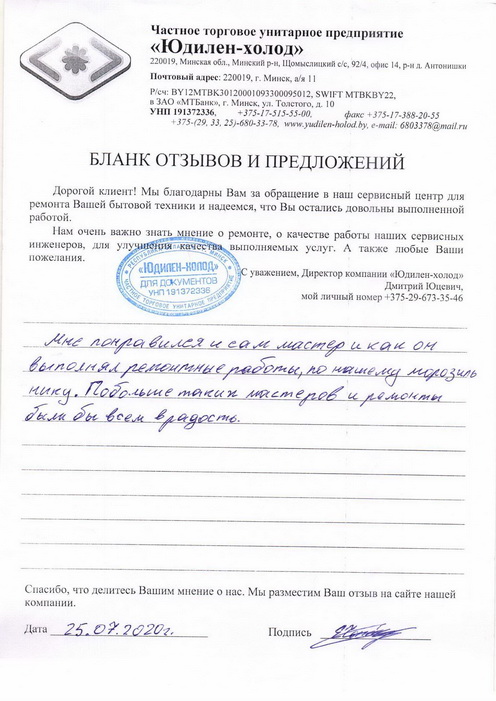 Частное торговое унитарное предприятие
«Юдилен-холод»
220019, Минская обл., Минский р-н, Щомыслицкий с/с, 92/4, офис 14, р-н д. Антонишки
Почтовый адрес: 220019, г. Минск, а/я 11
Р/сч: BY12MTBK30120001093300095012, SWIFT MTBKBY22,
в ЗАО «МТБанк», г. Минск, ул. Толстого, д. 10
УНП 191372336, +375-17-515-55-00, факс +375-17-388-20-55
+375-(29, 33, 25)-680-33-78, www.yudilen-holod.by, e-mail: 6803378@mail.ru
БЛАНК ОТЗЫВОВ И ПРЕДЛОЖЕНИЙ
Дорогой клиент! Мы благодарны Вам за обращение в наш сервисный центр для
ремонта Вашей бытовой техники и надеемся, что Вы остались довольны выполненной
работой.
Нам очень важно знать мнение о ремонте, о качестве работы наших сервисных
инженеров, для улучшения качества выполняемых услуг. А также любые Ваши
пожелания.
С уважением, Директор компании «Юдилен-холод»
Дмитрий Юцевич,
мой личный номер +375-29-673-35-46
«ЮДИЛЕН-ХОЛОД»
ДЛЯ ДОКУМЕНТОВ
УНП 191372336
ЧАСТНОЕ ТОРГОВОЕ УНИТАРНОЕ ПРЕДПРИЯТИЕ
Мне понравился и сам мастер и как он
выполнял ремонтные работы, по нашему морозиль
нику. Побольше таких мастеров и ремонты
были бы всем в радость.
Спасибо, что делитесь Вашим мнение о нас. Мы разместим Ваш отзыв на сайте нашей
компании.
Дата 25.07.2020г. Подпись